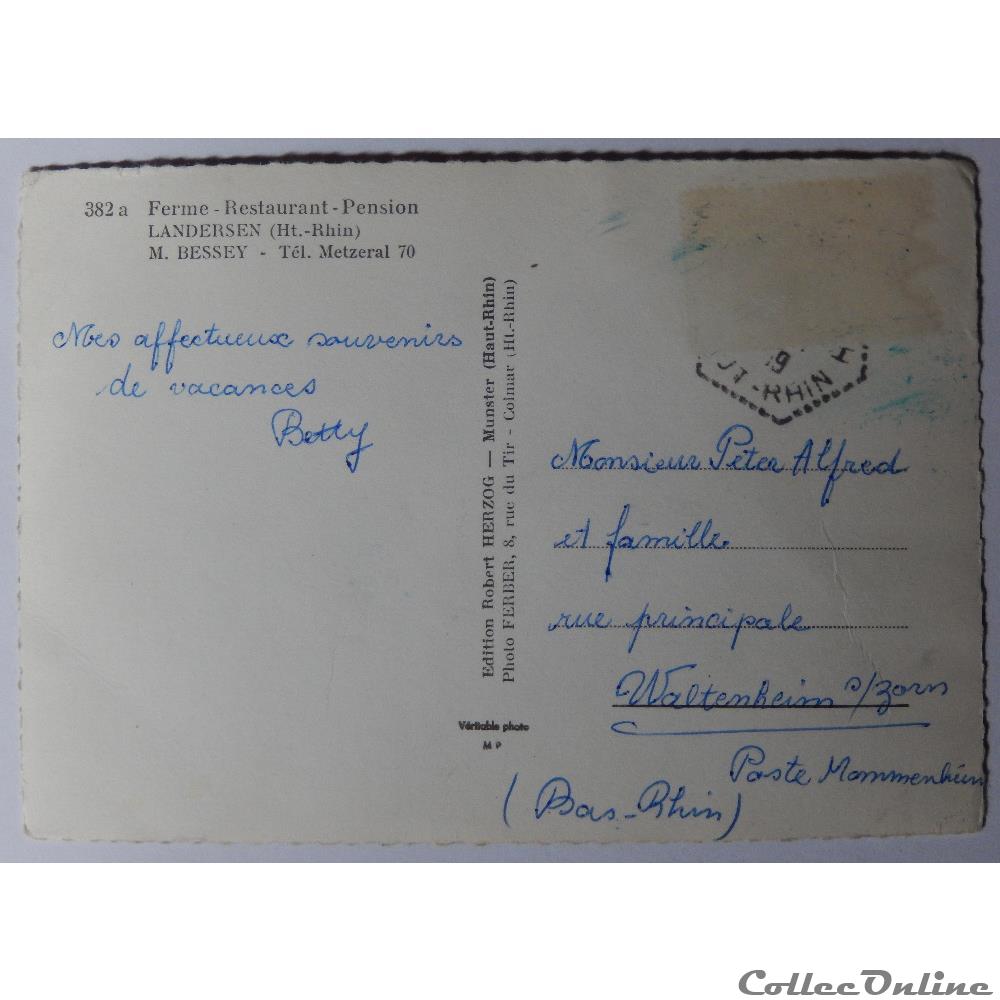 382 a Ferme - Restaurant - Pension
LANDERSEN (Ht.-Rhin)
M. BESSEY - Tél. Metzeral 70
Mes affectueux souvenirs
de vacances
Betty
Edition Robert HERZOG — Munster (Haut-Rhin)
Photo FERBER, 8, rue du Tir - Colmar (Ht.-Rhin)
Véritable photo
M P
19
UT-RHIN
Monsieur Peter Alfred
et famille
rue principale
Waltenheim s/zorn
Poste Mommenheim
(Bas-Rhin)
CollecOnline